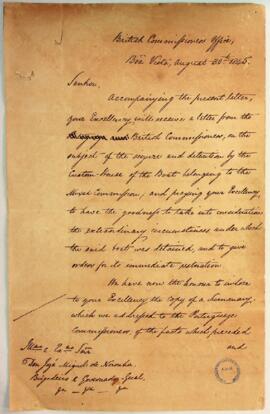 British Commissioners Office,
Bôa Vista, August 30th 1845.
Senhor.
Accompanying the present letter,
Your Excellency will receive a letter from the
British Commissioner, on the
subject of the seizure and detention by the
Custom House of the Boat belonging to the
Mixed Commission, and praying Your Excellency
to have the goodness to take into consideration
the extraordinary circumstances under which
the said boat was detained, and to give
orders for its immediate restoration.
We have now the honour to enclose
to Your Excellency the copy of a Summary
which we addressed to the Portuguese
Commissioner of the facts which preceded
and
Illmo e Exmo Snr
Dom José Miguel de Noronha,
Brigadeiro e Governador Geral